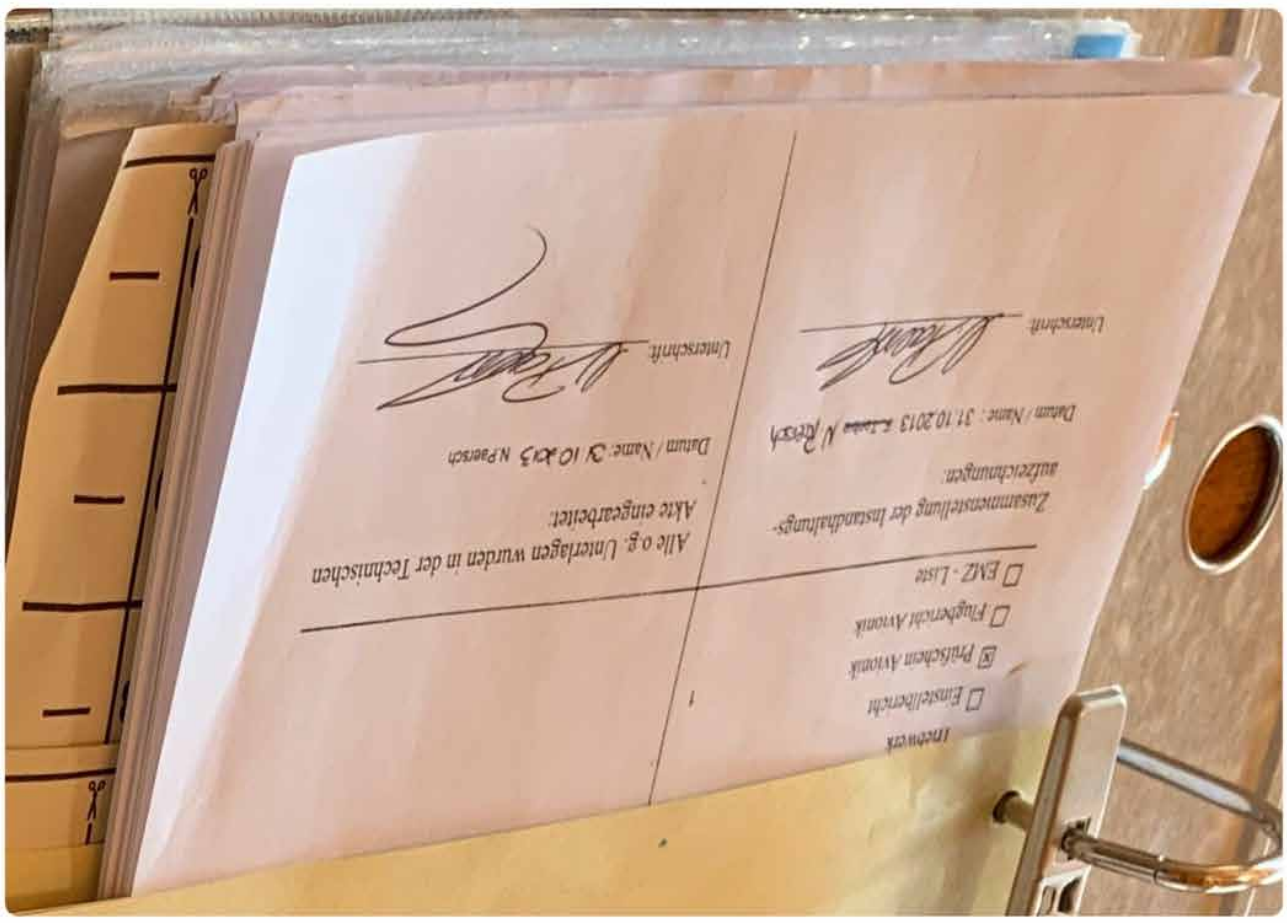 Triebwerk
☐ Einstellbericht
☒ Prüfschein Avionik
☐ Flugbericht Avionik
☐ EMZ - Liste
1
Zusammenstellung der Instandhaltungs-
aufzeichnungen:
Datum / Name : 31.10.2013
Unterschrift:
Alle o.g. Unterlagen wurden in der Technischen
Akte eingearbeitet:
Datum / Name: 31 10 2013 N.Paersch
Unterschrift: